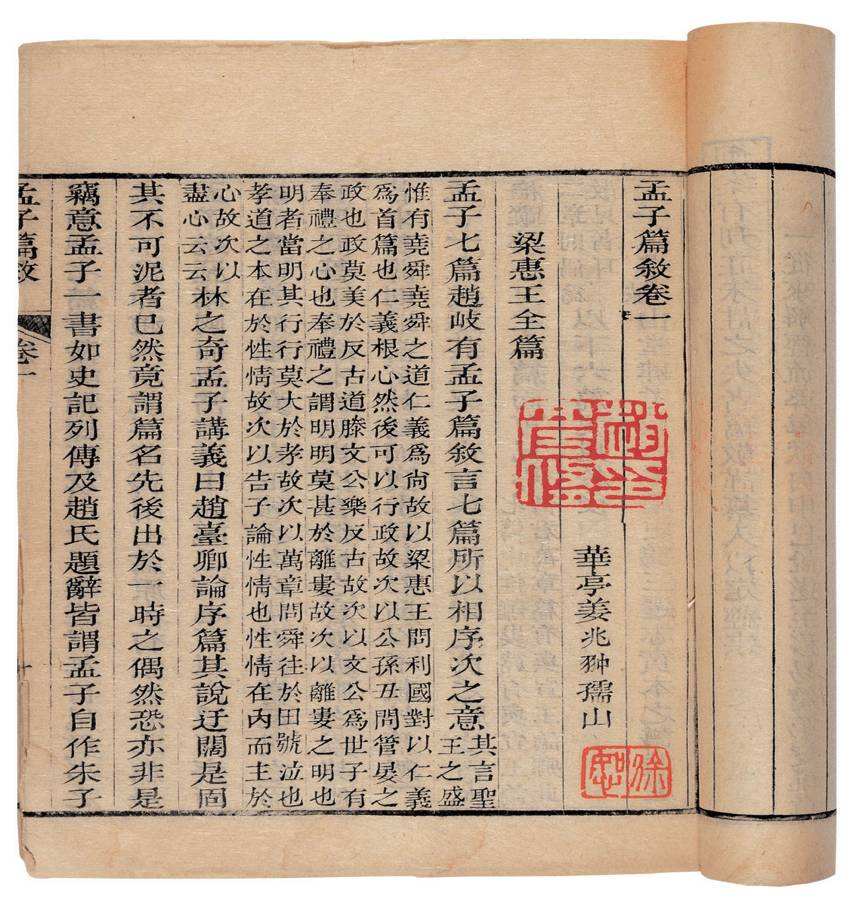 孟子篇敘卷一
華亭姜兆翀孺山
梁惠王全篇
孟子七篇趙岐有孟子篇敘言七篇所以相序次之意
其言聖
王之盛
惟有堯舜堯舜之道仁義爲尚故以梁惠王問利國對以仁義
爲首篇也仁義根心然後可以行政故次以公孫丑問管晏之
政也政莫美於反古道滕文公樂反古故次以文公爲世子有
奉禮之心也奉禮之謂明明莫甚於離婁故次以離婁之明也
明者當明其行行莫大於孝故次以萬章問舜往於田號泣也
孝道之本在於性情故次以告子論性情也性情在內而主於
心故次以
盡心云云
林之奇孟子講義曰趙臺卿論序篇其說迂闊是固
其不可泥者已然竟謂篇名先後出於一時之偶然恐亦非是
竊意孟子一書如史記列傳及趙氏題辭皆謂孟子自作朱子
孟子篇敘
卷一
徐恕